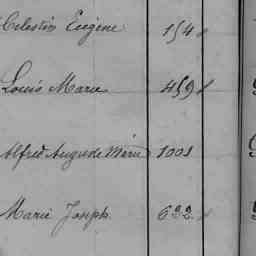 Celestin Eugène 154
Louis Marie 459
Alfred Auguste Marie 1001
Marie Joseph 622